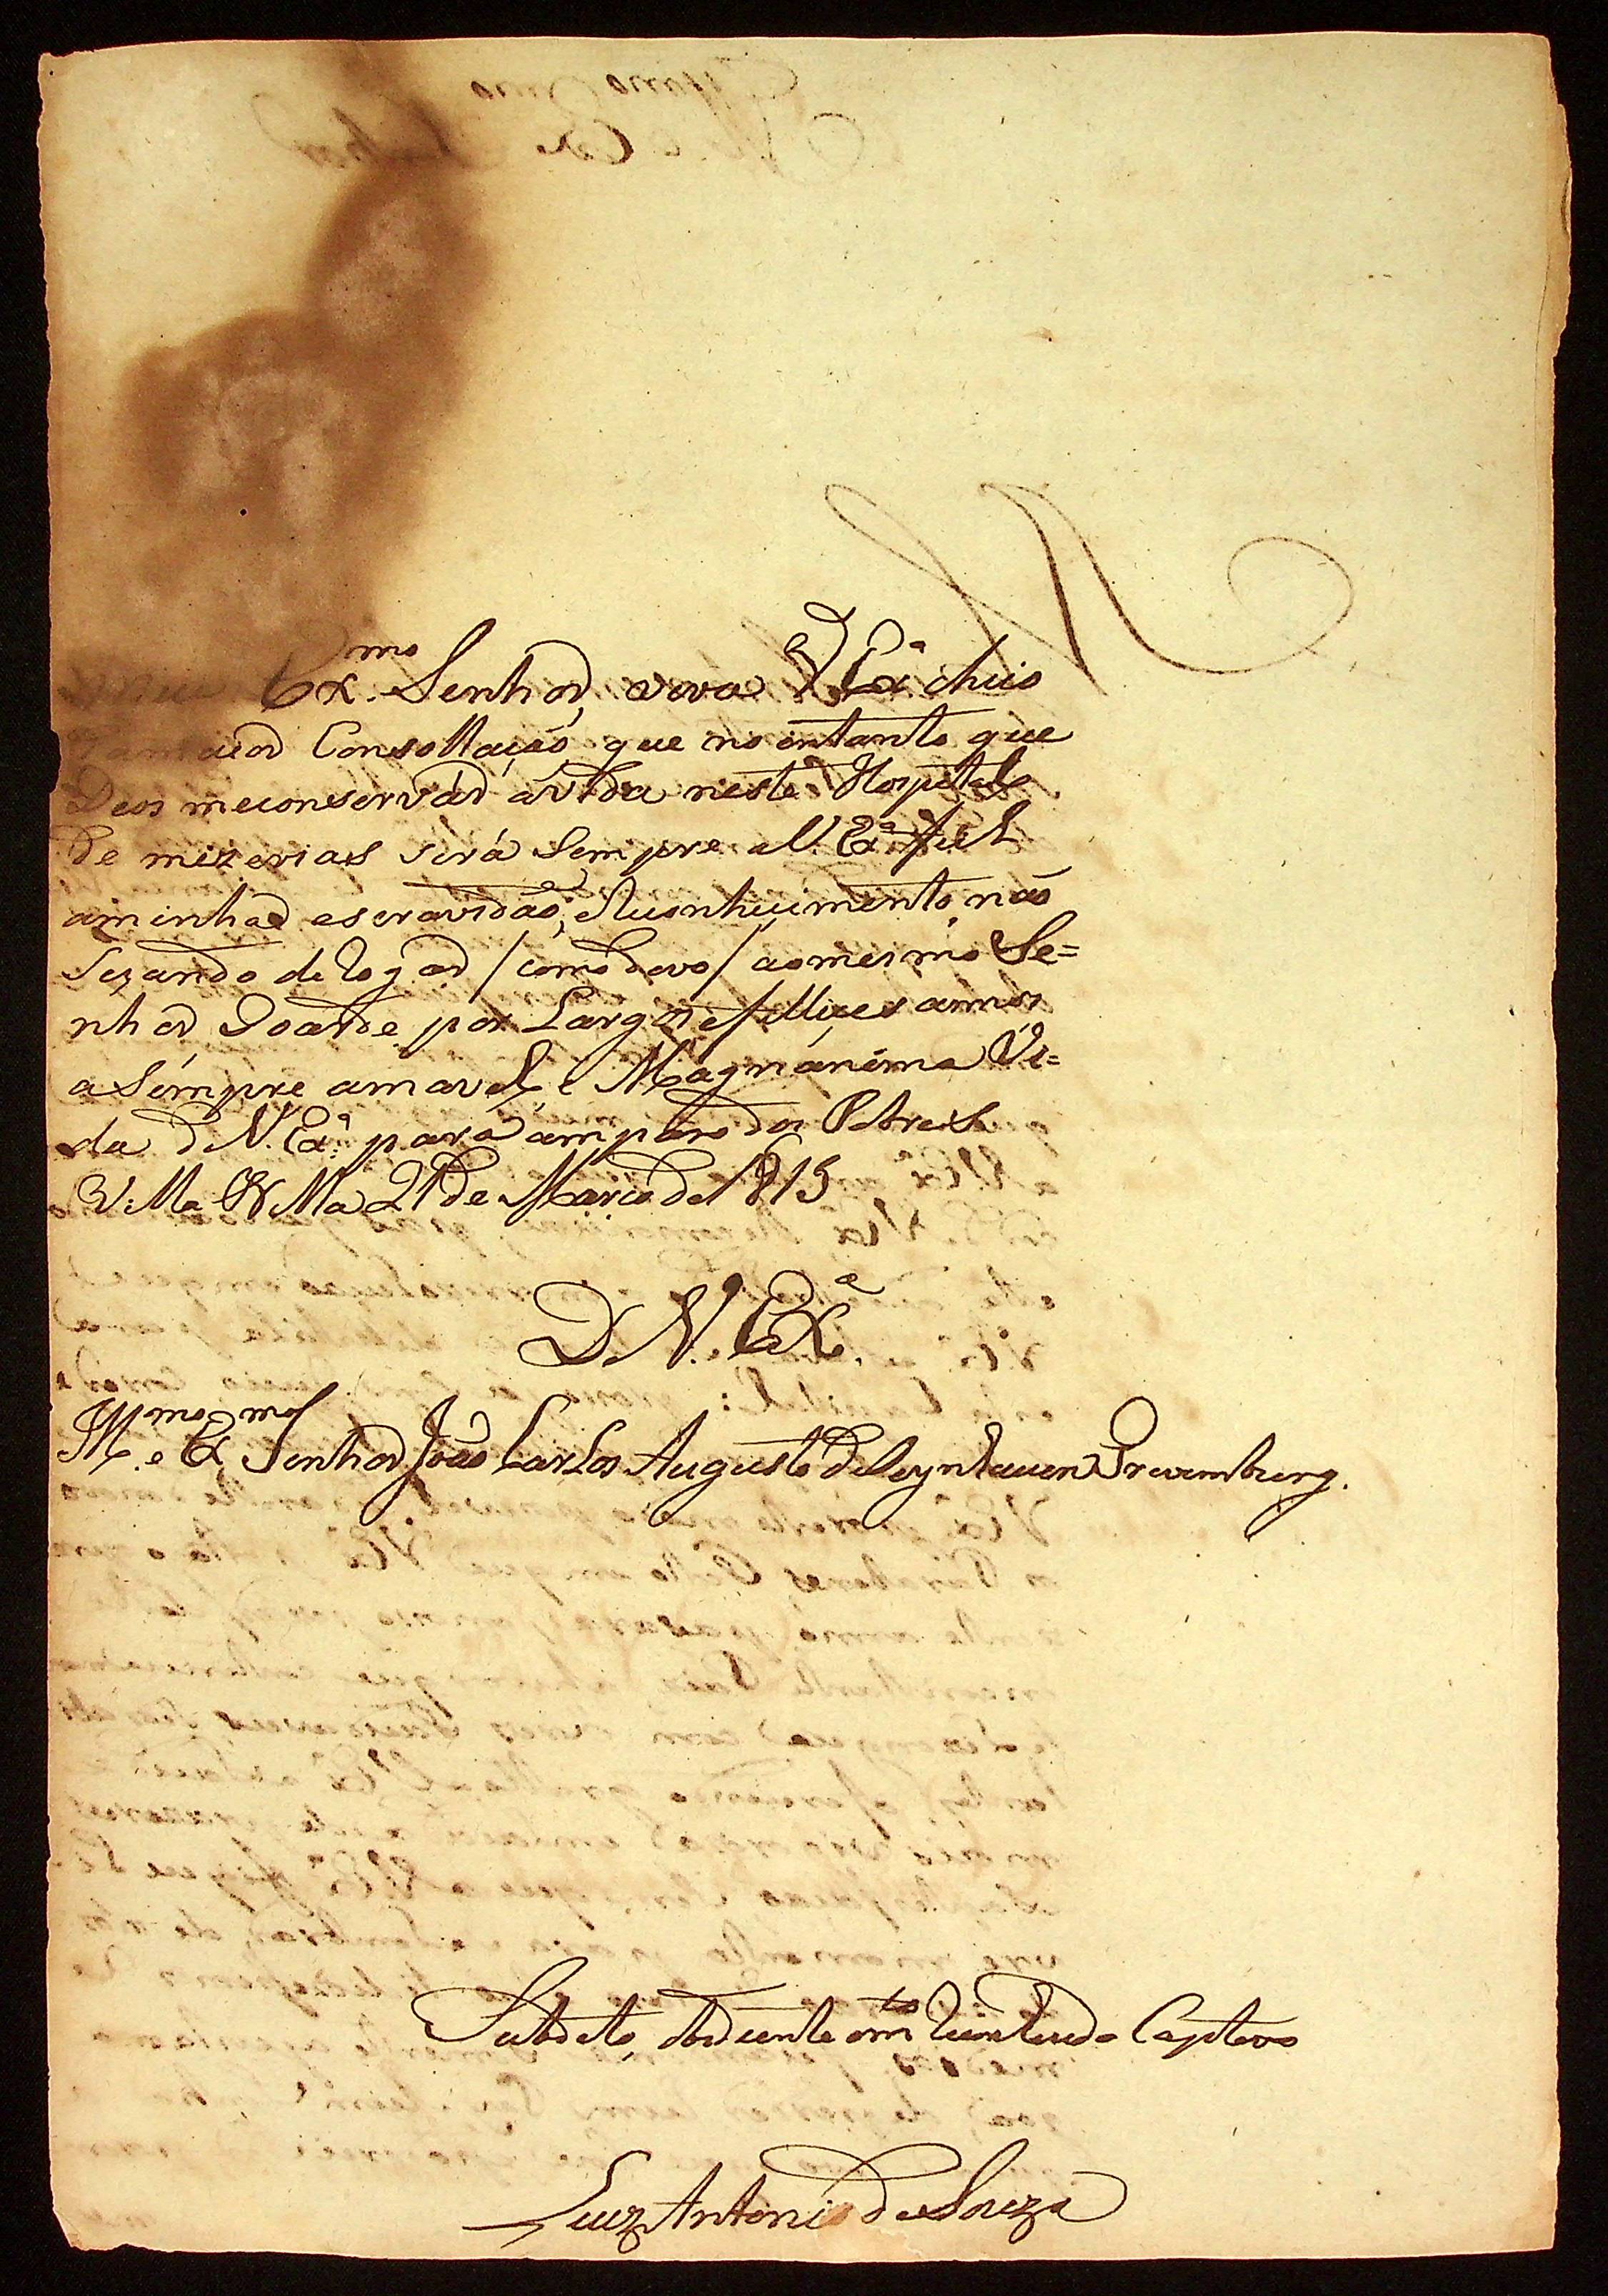 Ex.mo Senhor, viva V. Exª cheio
Consollação, que no entanto que
Deos meconservar avida neste Hospital
de mizerias será sempre a V. Exª fiel
aminha escravidão, eReconhecimento, não
Sezando de Rogar /como devo/ aomesmo Se=
nhor Goarde por Largos efellices annos
a Sempre amavel, e Magnánima Vi=
da de V. Exª para amparo dos Pobres
Villa Bella 21 de Março de 1815
De V. Exª
Ill.mo e Ex.mo Senhor João Carlos Augusto de Oeynhausen Grevemburg.
Subdito, obdiente omto Reverende Captivo
Luiz Antonio de Souza